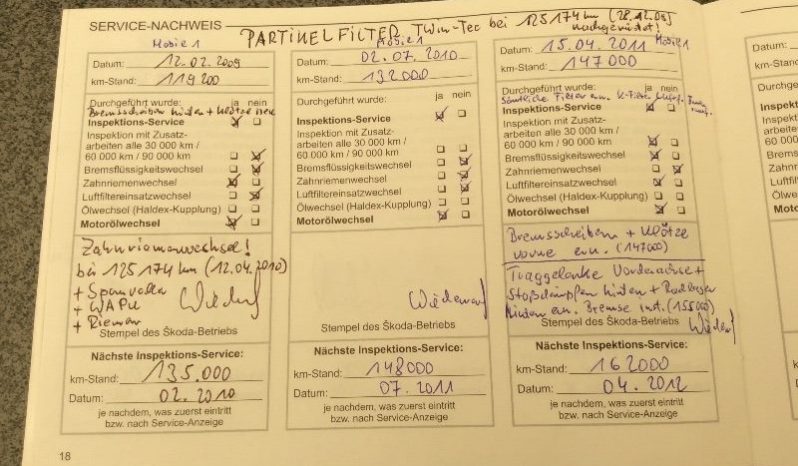 SERVICE-NACHWEIS
PARTIKELFILTER Twin-Tec bei 125174 km (28.12.09)
nachgerüstet!
Mobil 1
Datum: 12.02.2009
km-Stand: 119 200
Durchgeführt wurde: ja nein
Bremsscheiben hinten + Klötze neu
Inspektions-Service
Inspektion mit Zusatz-
arbeiten alle 30 000 km /
60 000 km / 90 000 km
Bremsflüssigkeitswechsel
Zahnriemenwechsel
Luftfiltereinsatzwechsel
Ölwechsel (Haldex-Kupplung)
Motorölwechsel
Zahnriemenwechsel!
bei 125 174 km (12.04.2010)
+ Spannrollen
+ WAPU
+ Riemen
Stempel des Škoda-Betriebs
Nächste Inspektions-Service:
km-Stand: 135.000
Datum: 02.2010
je nachdem, was zuerst eintritt
bzw. nach Service-Anzeige
18
Mobil 1
Datum: 02.07.2010
km-Stand: 132000
Durchgeführt wurde: ja nein
Inspektions-Service
Inspektion mit Zusatz-
arbeiten alle 30 000 km /
60 000 km / 90 000 km
Bremsflüssigkeitswechsel
Zahnriemenwechsel
Luftfiltereinsatzwechsel
Ölwechsel (Haldex-Kupplung)
Motorölwechsel
Stempel des Škoda-Betriebs
Nächste Inspektions-Service:
km-Stand: 148000
Datum: 07.2011
je nachdem, was zuerst eintritt
bzw. nach Service-Anzeige
Datum: 15.04.2011 Mobil 1
km-Stand: 147000
Durchgeführt wurde: ja nein
Sämtliche Filter ern.
Inspektions-Service
Inspektion mit Zusatz-
arbeiten alle 30 000 km /
60 000 km / 90 000 km
Bremsflüssigkeitswechsel
Zahnriemenwechsel
Luftfiltereinsatzwechsel
Ölwechsel (Haldex-Kupplung)
Motorölwechsel
Bremsscheiben + Klötze
vorne ern. (147000)
Traggelenke Vorderachse +
Stoßdämpfer hinten + Radlager
hinten ern. Bremse inst. (155000)
Stempel des Škoda-Betriebs
Nächste Inspektions-Service:
km-Stand: 162000
Datum: 04.2012
je nachdem, was zuerst eintritt
bzw. nach Service-Anzeige
Datum:
km-Stan
Durchgefü